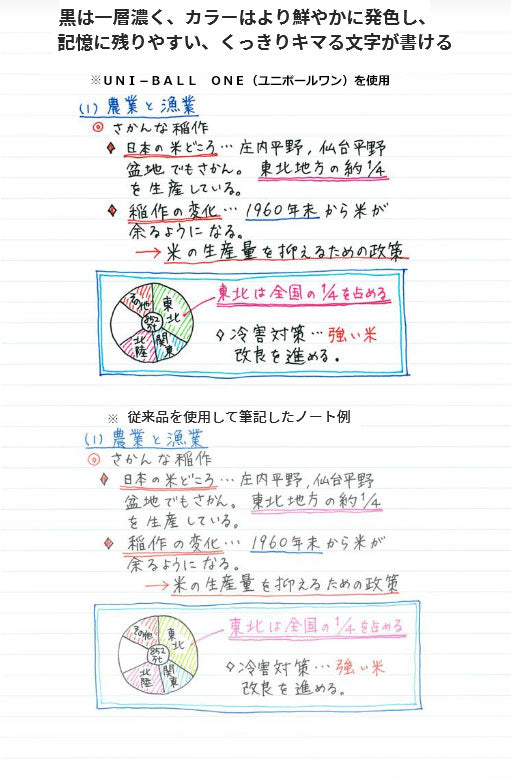 黒は一層濃く、カラーはより鮮やかに発色し、
記憶に残りやすい、くっきりキマる文字が書ける
※UNI-BALL ONE（ユニボールワン）を使用
(1) 農業と漁業
◎ さかんな稲作
◆ 日本の米どころ… 庄内平野, 仙台平野
盆地でもさかん。 東北地方の約1/4
を生産している。
◆ 稲作の変化… 1960年末から米が
余るようになる。
→米の生産量を抑えるための政策
その他
東北
852万t
北陸
関東
東北は全国の1/4を占める
◇冷害対策…強い米
改良を進める。
※ 従来品を使用して筆記したノート例
(1) 農業と漁業
◎ さかんな稲作
◆ 日本の米どころ… 庄内平野, 仙台平野
盆地でもさかん。 東北地方の約1/4
を生産している。
◆ 稲作の変化… 1960年末から米が
余るようになる。
→米の生産量を抑えるための政策
その他
東北
852万t
北陸
関東
東北は全国の1/4を占める
◇冷害対策…強い米
改良を進める。